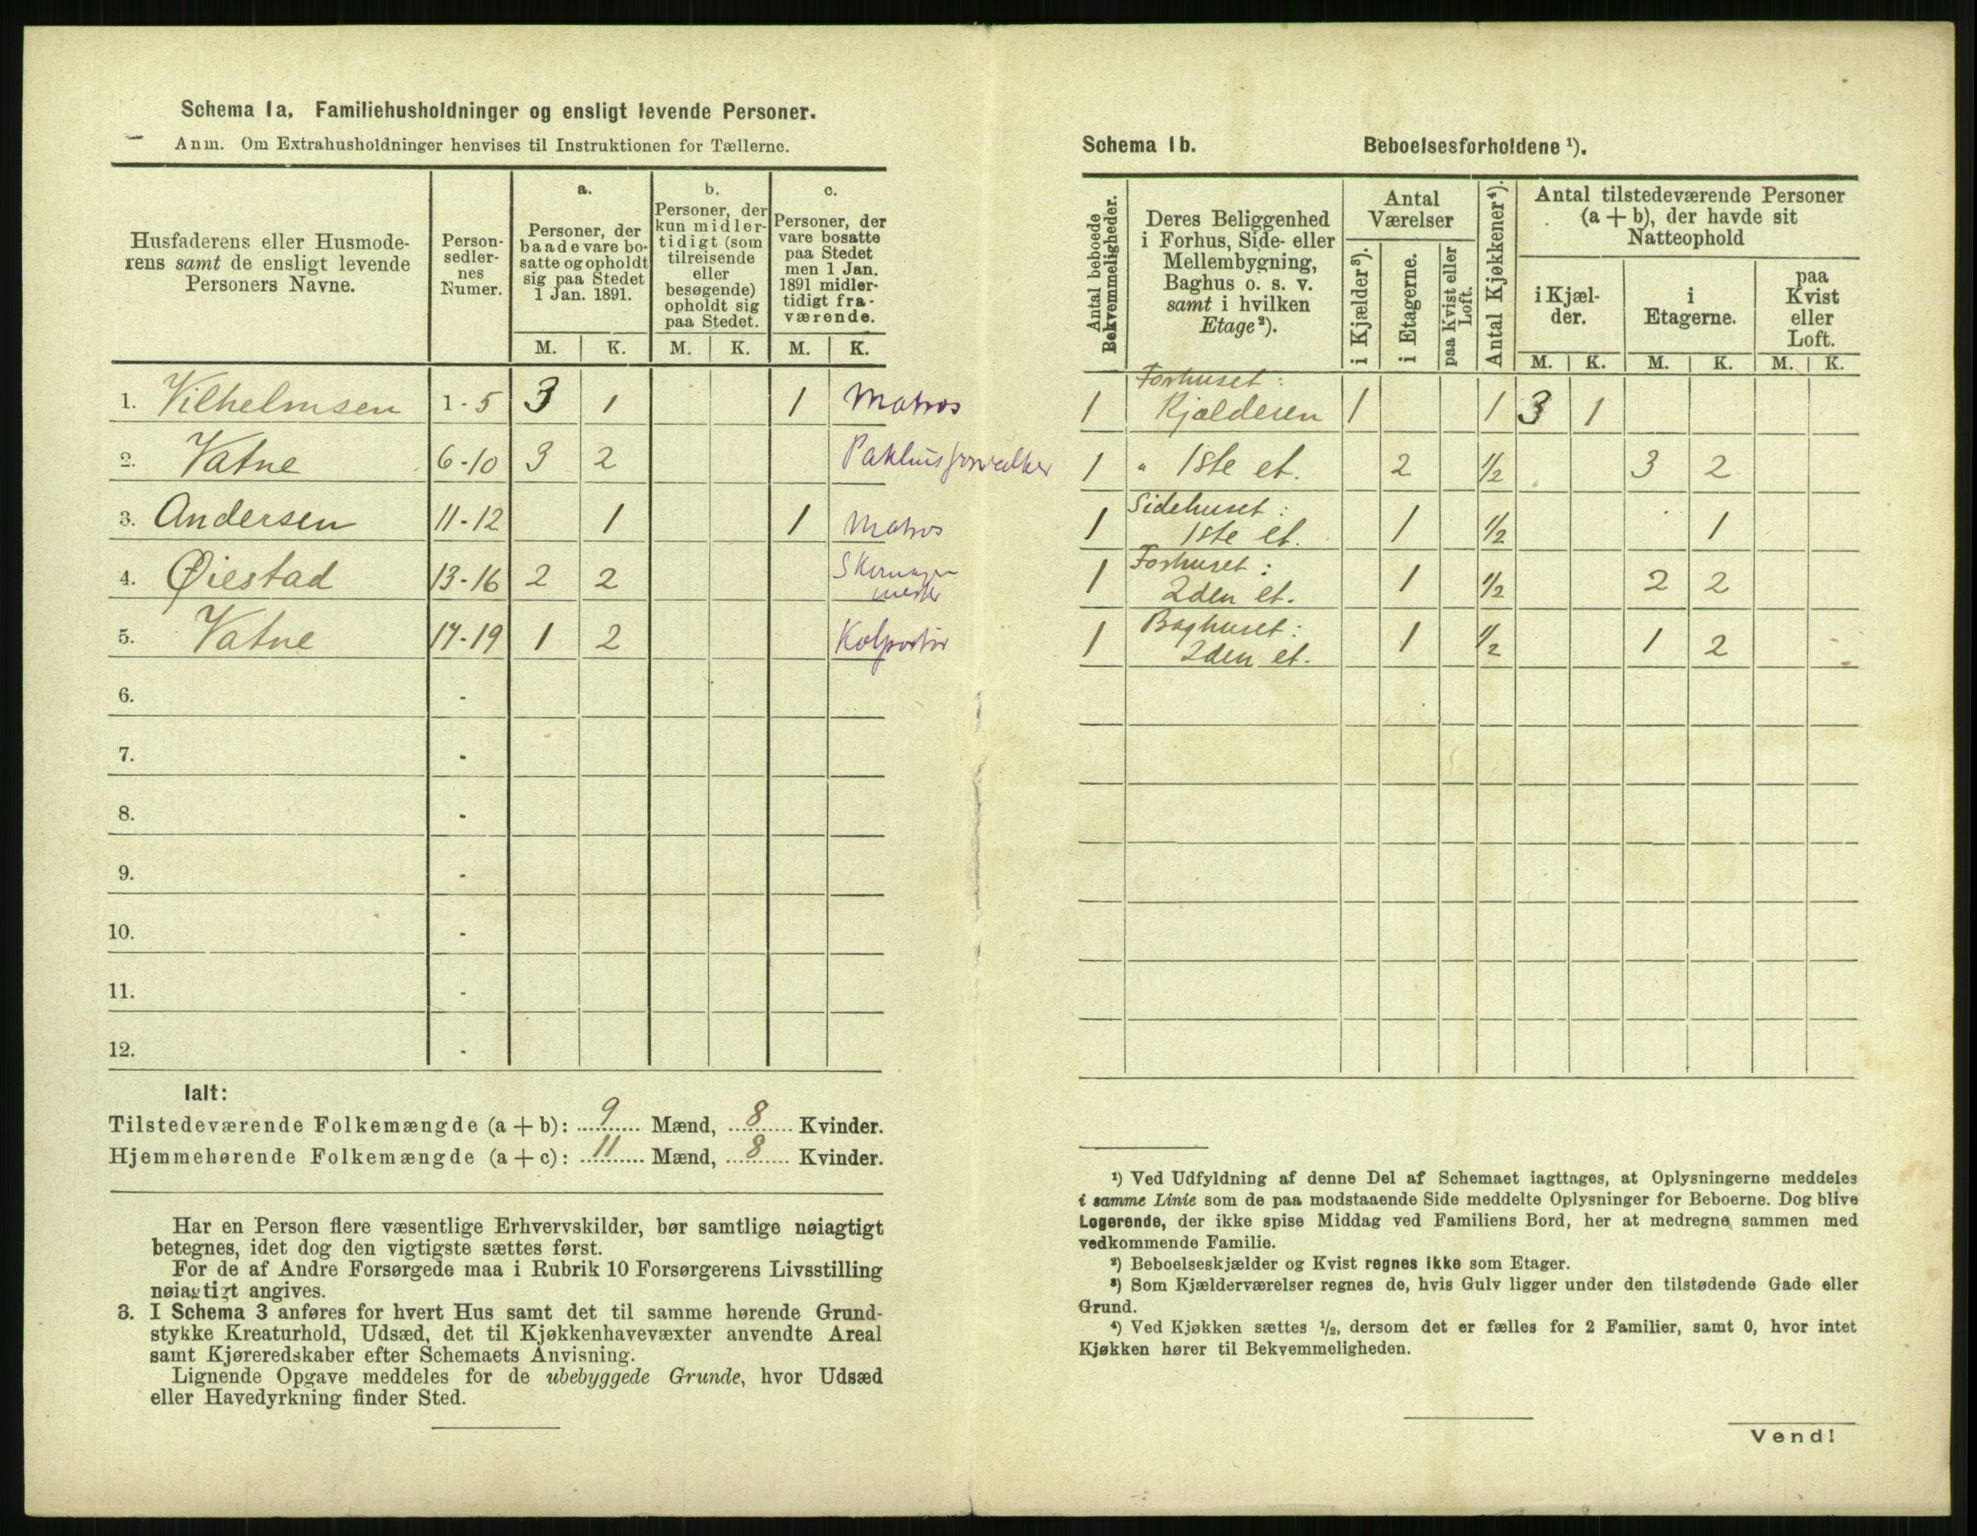 Schema 1a. Familiehusholdninger og ensligt levende Personer.
Anm. Om Extrahusholdninger henvises til Instruktionen for Tællerne.
Husfaderens eller Husmoderens samt de ensligt levende Personers Navne.
Personsedlernes Numer.
a. Personer, der baade vare bosatte og opholdt sig paa Stedet 1 Jan. 1891.
b. Personer, der kun midlertidigt (som tilreisende eller besøgende) opholdt sig paa Stedet.
c. Personer, der vare bosatte paa Stedet men 1 Jan. 1891 midlertidigt fraværende.
M. K. M. K. M. K.
1. Vilhelmsen 1-5 3 1 1 Matros
2. Vatne 6-10 3 2 Pakhusforvalter
3. Andersen 11-12 1 1 Matros
4. Øiestad 13-16 2 2
5. Vatne 17-19 1 2 Kolportør
6. -
7. -
8. -
9. -
10. -
11. -
12. -
Ialt:
Tilstedeværende Folkemængde (a+b): 9 Mænd, 8 Kvinder.
Hjemmehørende Folkemængde (a+c): 11 Mænd, 8 Kvinder.
Har en Person flere væsentlige Erhvervskilder, bør samtlige nøiagtigt
betegnes, idet dog den vigtigste sættes først.
For de af Andre Forsørgede maa i Rubrik 10 Forsørgerens Livsstilling
nøiagtigt angives.
3. I Schema 3 anføres for hvert Hus samt det til samme hørende Grund-
stykke Kreaturhold, Udsæd, det til Kjøkkenhavevæxter anvendte Areal
samt Kjøreredskaber efter Schemaets Anvisning.
Lignende Opgave meddeles for de ubebyggede Grunde, hvor Udsæd
eller Havedyrkning finder Sted.
Schema 1b. Beboelsesforholdene ¹).
Antal beboede Bekvemmeligheder.
Deres Beliggenhed i Forhus, Side- eller Mellembygning, Baghus o. s. v. samt i hvilken Etage²).
Antal Værelser
i Kjælder³).
i Etagerne.
paa Kvist eller Loft.
Antal Kjøkkener⁴).
Antal tilstedeværende Personer (a+b), der havde sit Natteophold
i Kjælder.
i Etagerne.
paa Kvist eller Loft.
M. K. M. K. M. K.
1 Forhuset: Kjælderen 1 1 3 1
1 " 1ste et. 2 ½ 3 2
1 Sidehuset: 1ste et. 1 ½ 1
1 Forhuset: 2den et. 1 ½ 2 2
1 Baghuset: 2den et. 1 ½ 1 2
¹) Ved Udfyldning af denne Del af Schemaet iagttages, at Oplysningerne meddeles
i samme Linie som de paa modstaaende Side meddelte Oplysninger for Beboerne. Dog blive
Logerende, der ikke spise Middag ved Familiens Bord, her at medregne sammen med
vedkommende Familie.
²) Beboelseskjælder og Kvist regnes ikke som Etager.
³) Som Kjælderværelser regnes de, hvis Gulv ligger under den tilstødende Gade eller
Grund.
⁴) Ved Kjøkken sættes ½, dersom det er fælles for 2 Familier, samt 0, hvor intet
Kjøkken hører til Bekvemmeligheden.
Vend!